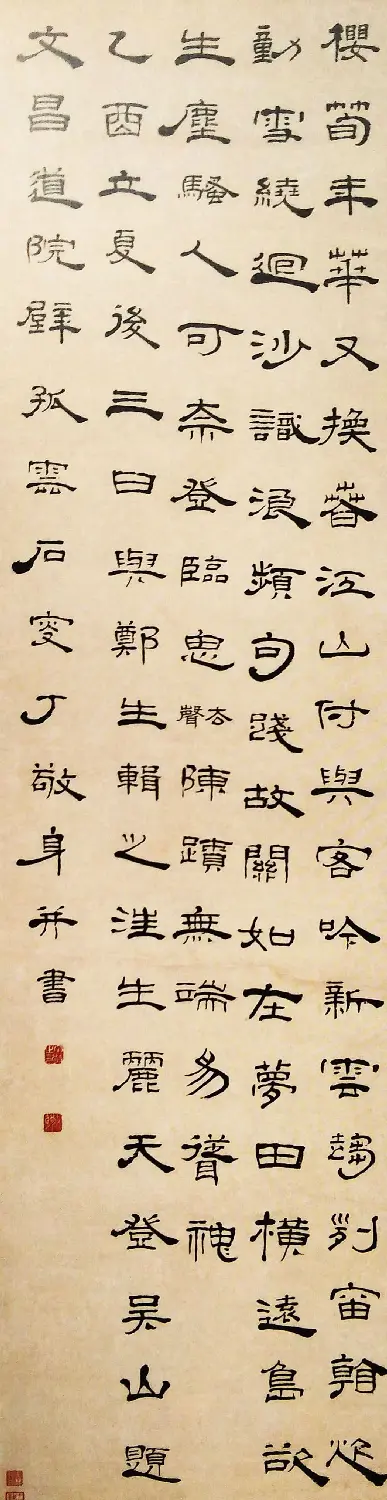 櫻筍年華又換春江山付與客吟新雲趨列朝炊
動雪繞迴沙識浪頻句踐故關如在夢田橫遠島欲
生塵騷人可奈登臨思去聲陳蹟無端易䰠
乙酉立夏後三日與鄭生輯之汪生麗天登吳山題
文昌道院壁孤雲石叟丁敬身并書